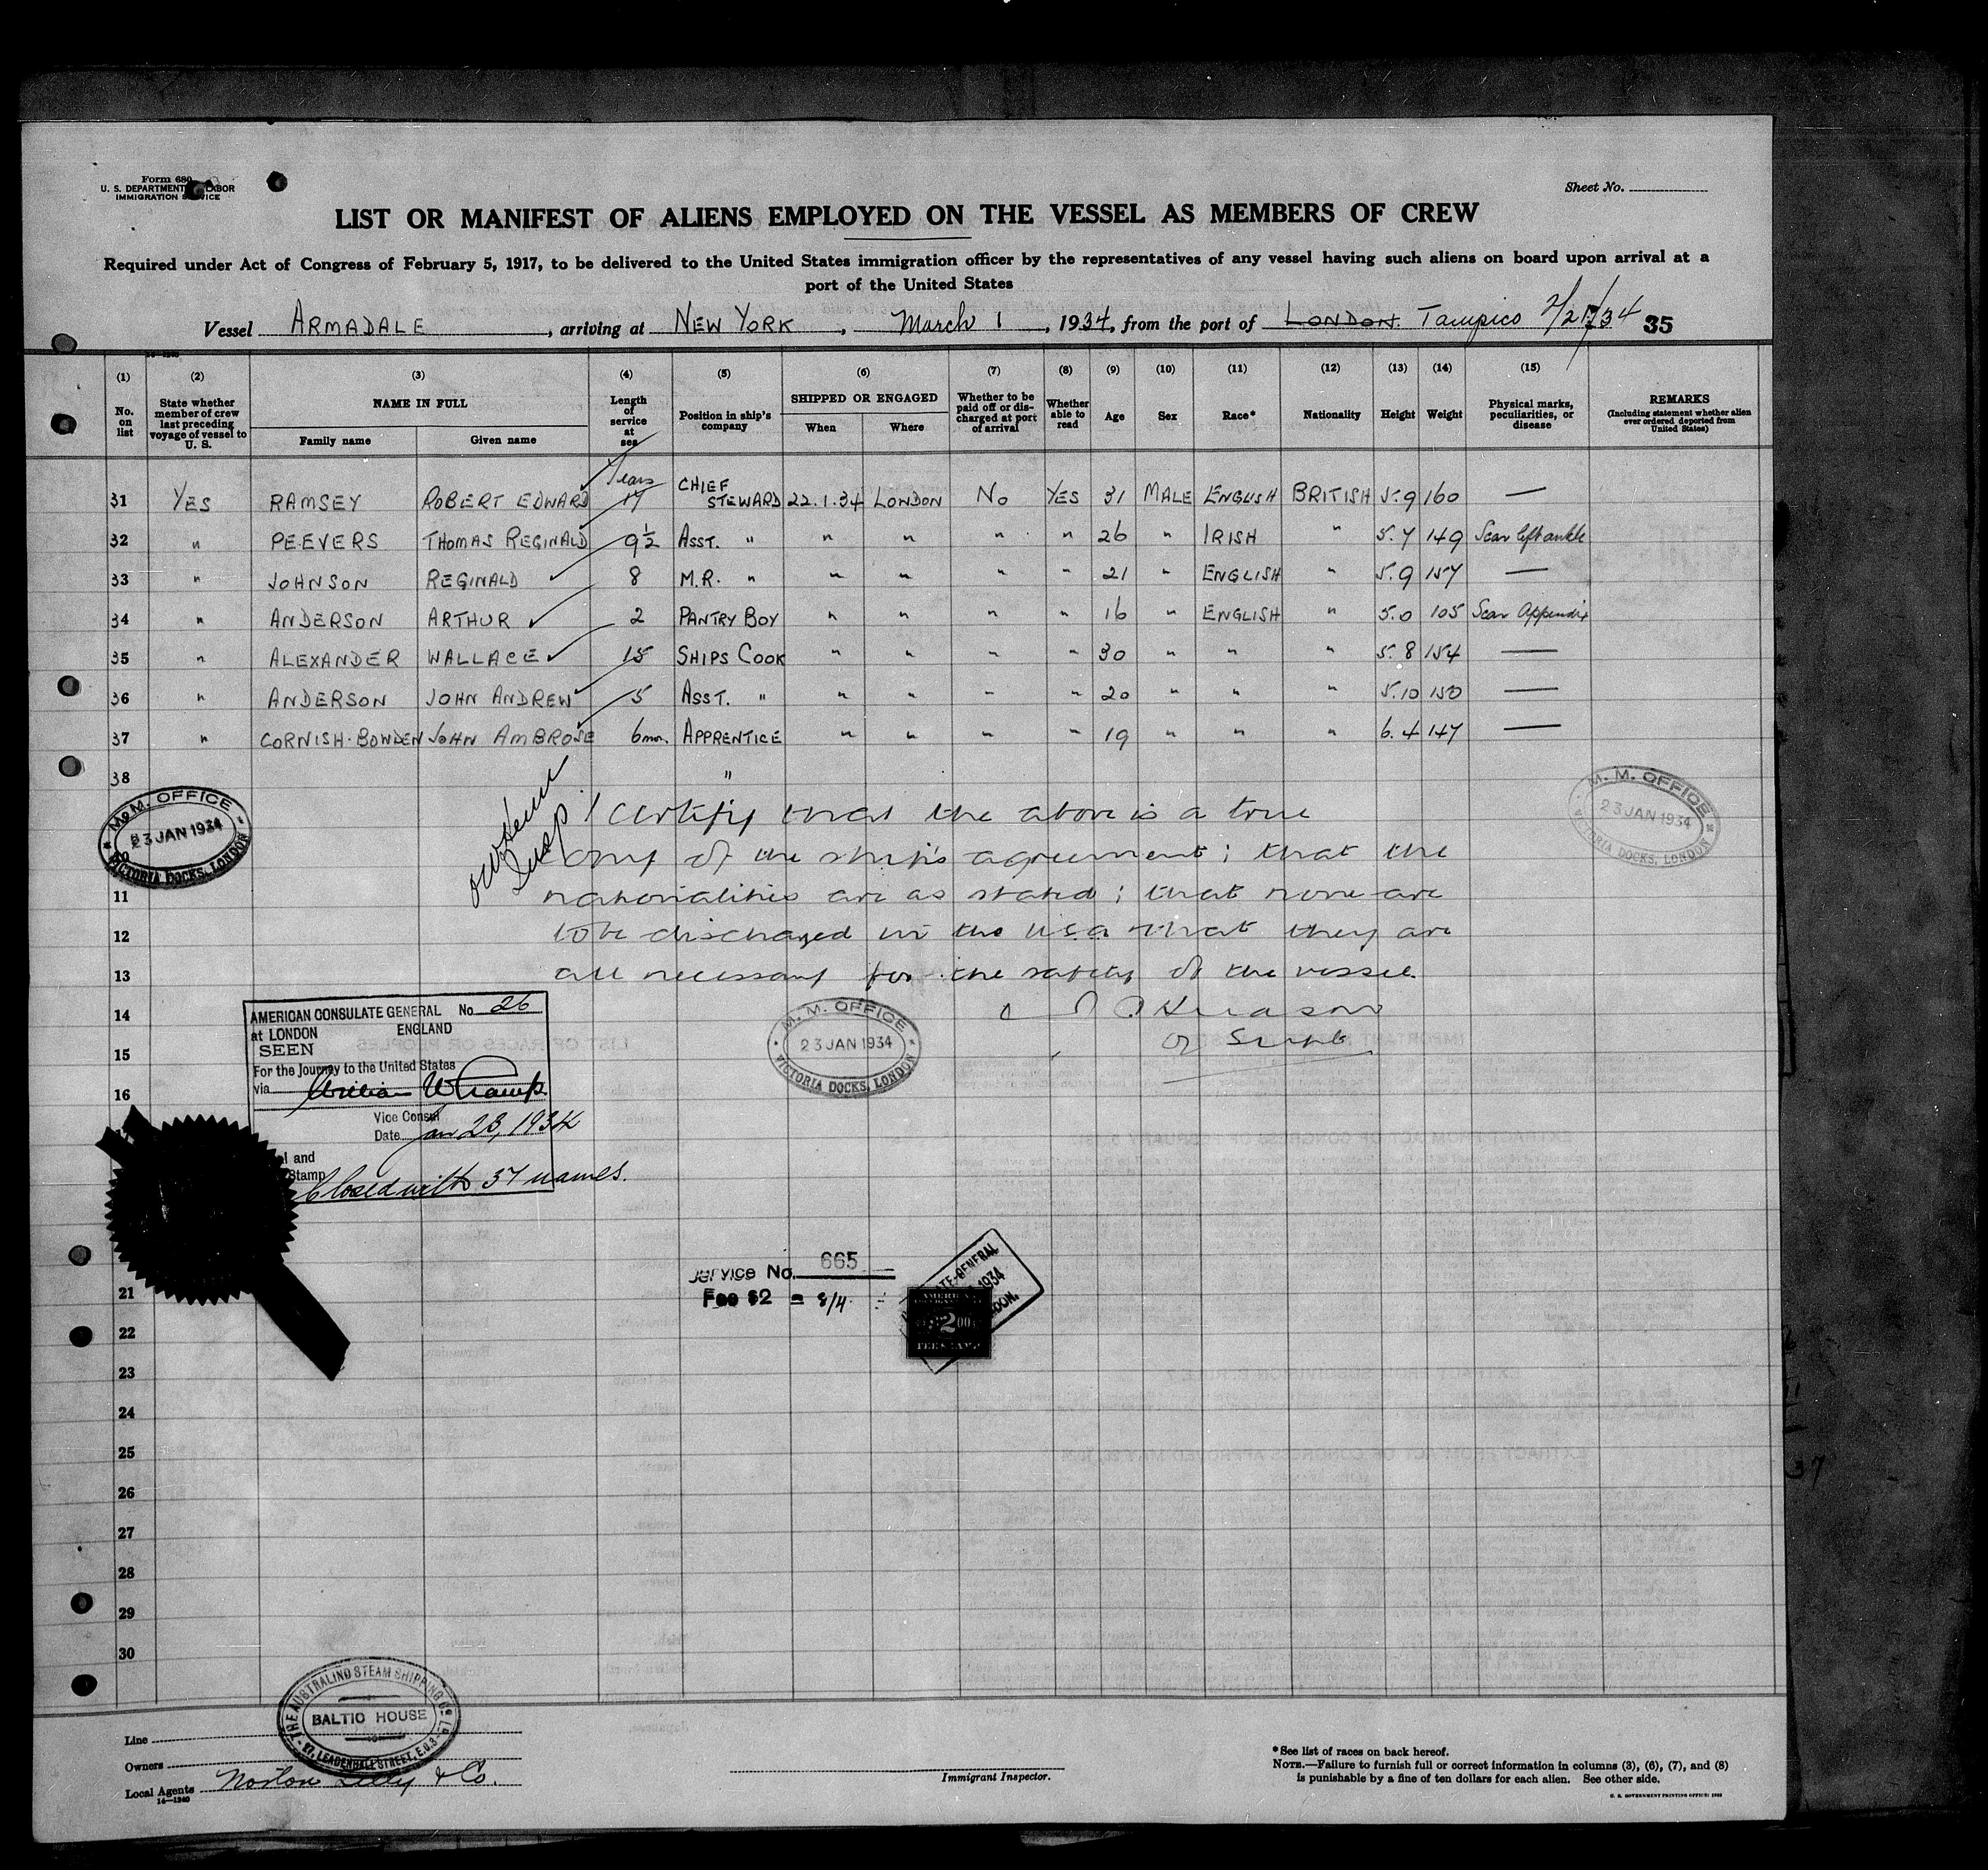 Form 680
U. S. DEPARTMENT LABOR
IMMIGRATION SERVICE
Sheet No.
LIST OR MANIFEST OF ALIENS EMPLOYED ON THE VESSEL AS MEMBERS OF CREW
Required under Act of Congress of February 5, 1917, to be delivered to the United States immigration officer by the representatives of any vessel having such aliens on board upon arrival at a
port of the United States
Vessel ARMADALE, arriving at NEW YORK, March 1, 1934, from the port of LONDON. Tampico 2/21/34 35
(1) (2) (3) (4) (5) (6) (7) (8) (9) (10) (11) (12) (13) (14) (15)
No. on list
State whether member of crew last preceding voyage of vessel to U. S.
NAME IN FULL
Family name Given name
Length of service at sea
Position in ship's company
SHIPPED OR ENGAGED
When Where
Whether to be paid off or discharged at port of arrival
Whether able to read
Age Sex Race* Nationality Height Weight
Physical marks, peculiarities, or disease
REMARKS
(Including statement whether alien ever ordered deported from United States)
Years
31 YES RAMSEY ROBERT EDWARD 17 CHIEF STEWARD 22.1.34 LONDON NO YES 31 MALE ENGLISH BRITISH 5.9 160 —
32 " PEEVERS THOMAS REGINALD 9½ ASST. " " " " " 26 " IRISH " 5.7 149 Scar left ankle
33 " JOHNSON REGINALD 8 M.R. " " " " " 21 " ENGLISH " 5.9 157 —
34 " ANDERSON ARTHUR 2 PANTRY BOY " " " " 16 " ENGLISH " 5.0 105 Scar Appendix
35 " ALEXANDER WALLACE 15 SHIPS COOK " " " " 30 " " " 5.8 154 —
36 " ANDERSON JOHN ANDREW 5 ASST. " " " " " 20 " " " 5.10 150 —
37 " CORNISH-BOWDEN JOHN AMBROSE 6 mon. APPRENTICE " " " " 19 " " " 6.4 147 —
38 "
I certify that the above is a true
copy of the ship's agreement; that the
11 nationalities are as stated; that none are
12 to be discharged in the USA that they are
13 all necessary for the safety of the vessel.
14
15 Supt
16
M. M. OFFICE
23 JAN 1934
VICTORIA DOCKS, LONDON
M. M. OFFICE
23 JAN 1934
VICTORIA DOCKS, LONDON
M. M. OFFICE
23 JAN 1934
VICTORIA DOCKS, LONDON
AMERICAN CONSULATE GENERAL No. 26
at LONDON ENGLAND
SEEN
For the Journey to the United States
via
Vice Consul
Date Jan 23, 1934
l and
Stamp
Closed with 37 names.
Service No. 665
Fee $2 = 8/4
TE-GENERAL
1934
DON.
AMERICAN
$2.00
FEE STAMP
21
22
23
24
25
26
27
28
29
30
THE AUSTRALIND STEAM SHIPPING Co. Ld.
BALTIC HOUSE
27, LEADENHALL STREET, E.C.3
Line
Owners
Local Agents Norton Lilly & Co.
14—1240
Immigrant Inspector.
*See list of races on back hereof.
NOTE.—Failure to furnish full or correct information in columns (3), (6), (7), and (8)
is punishable by a fine of ten dollars for each alien. See other side.
U. S. GOVERNMENT PRINTING OFFICE: 1932
37